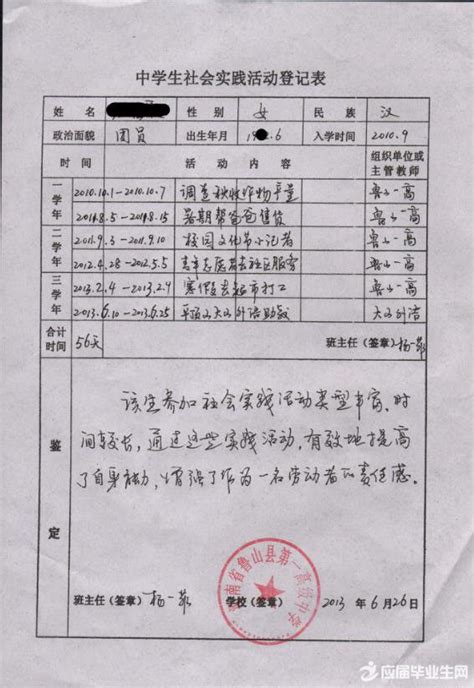 中学生社会实践活动登记表
姓 名 性 别 女 民 族 汉
政治面貌 团员 出生年月 19 .6 入学时间 2010.9
时 间 活 动 内 容 组织单位或主管教师
一学年 2010.10.1—2010.10.7 调查秋收作物产量 鲁山一高
2011.8.5—2011.8.15 暑期帮爸爸售货 鲁山一高
二学年 2011.9.3—2011.9.10 校园文化节小记者 鲁山一高
2012.4.28—2012.5.5 青年志愿者去社区服务 鲁山一高
三学年 2013.2.4—2013.2.9 寒假去超市打工 鲁山一高
2013.6.10—2013.6.25 平顶山大山外语助教 大山外语
合计时间 56天 班主任（签章）杨一
鉴定
该生参加社会实践活动类型丰富，时
间较长，通过这些实践活动，有效地提高
了自身能力，增强了作为一名劳动者的责任感。
河南省鲁山县第一高级中学
班主任（签章）杨一 学校（签章） 2013 年 6 月 26 日
应届毕业生网